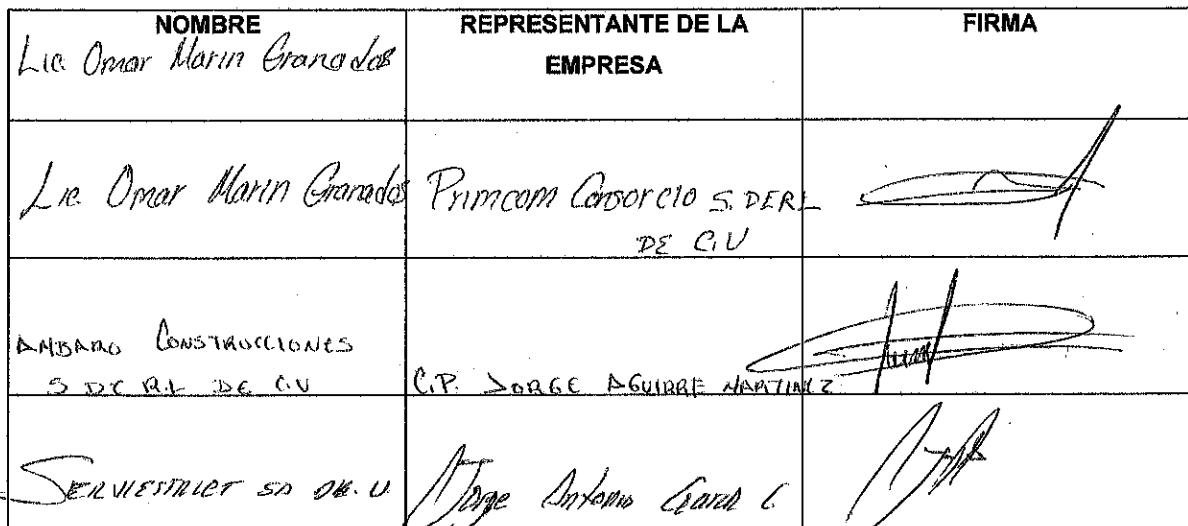 NOMBRE
REPRESENTANTE DE LA
EMPRESA
FIRMA
Lic Omar Marin Granados
Lic. Omar Marin Granados
Primcom Consorcio S. DE RL
DE C.V
CONSTRUCCIONES
S DE RL DE C.V
C.P. JORGE AGUIRRE MARTINEZ
SERVIESTRUCT SA DE.V
Jorge Antonio C.